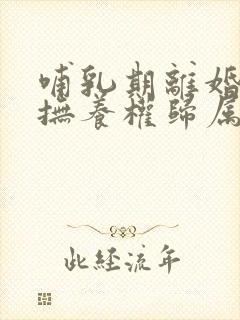 哺乳期離婚
撫養權歸属
此經流年